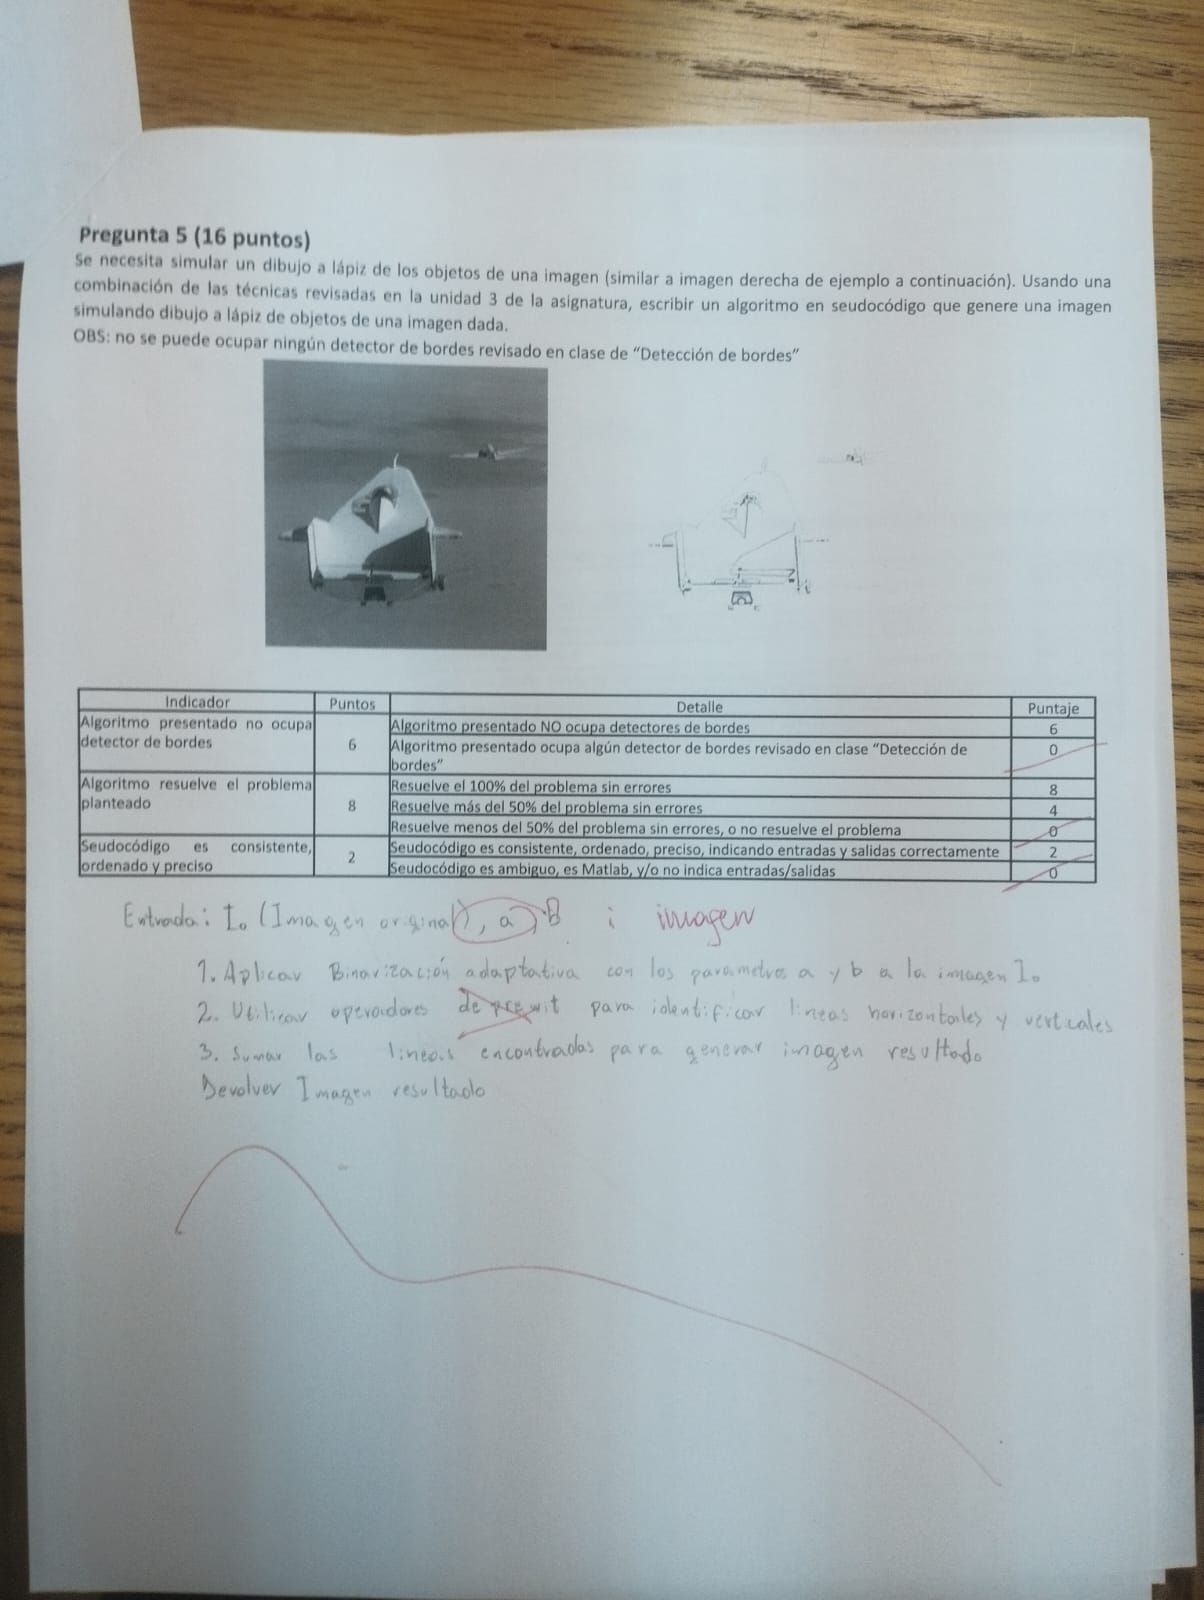 Pregunta 5 (16 puntos)
Se necesita simular un dibujo a lápiz de los objetos de una imagen (similar a imagen derecha de ejemplo a continuación). Usando una
combinación de las técnicas revisadas en la unidad 3 de la asignatura, escribir un algoritmo en seudocódigo que genere una imagen
simulando dibujo a lápiz de objetos de una imagen dada.
OBS: no se puede ocupar ningún detector de bordes revisado en clase de “Detección de bordes”
Indicador Puntos Detalle Puntaje
Algoritmo presentado no ocupa detector de bordes 6 Algoritmo presentado NO ocupa detectores de bordes 6
Algoritmo presentado ocupa algún detector de bordes revisado en clase “Detección de bordes” 0
Algoritmo resuelve el problema planteado 8 Resuelve el 100% del problema sin errores 8
Resuelve más del 50% del problema sin errores 4
Resuelve menos del 50% del problema sin errores, o no resuelve el problema 0
Seudocódigo es consistente, ordenado y preciso 2 Seudocódigo es consistente, ordenado, preciso, indicando entradas y salidas correctamente 2
Seudocódigo es ambiguo, es Matlab, y/o no indica entradas/salidas 0
Entrada: Io (Imagen original), a, B i imagen
1. Aplicar Binarización adaptativa con los parametros a y b a la imagen Io
2. Utilicar operoidores de prewit para identificar lineas horizontales y verticales
3. Sumar las lineas encontradas para generar imagen resultado
Devolver Imagen resultado